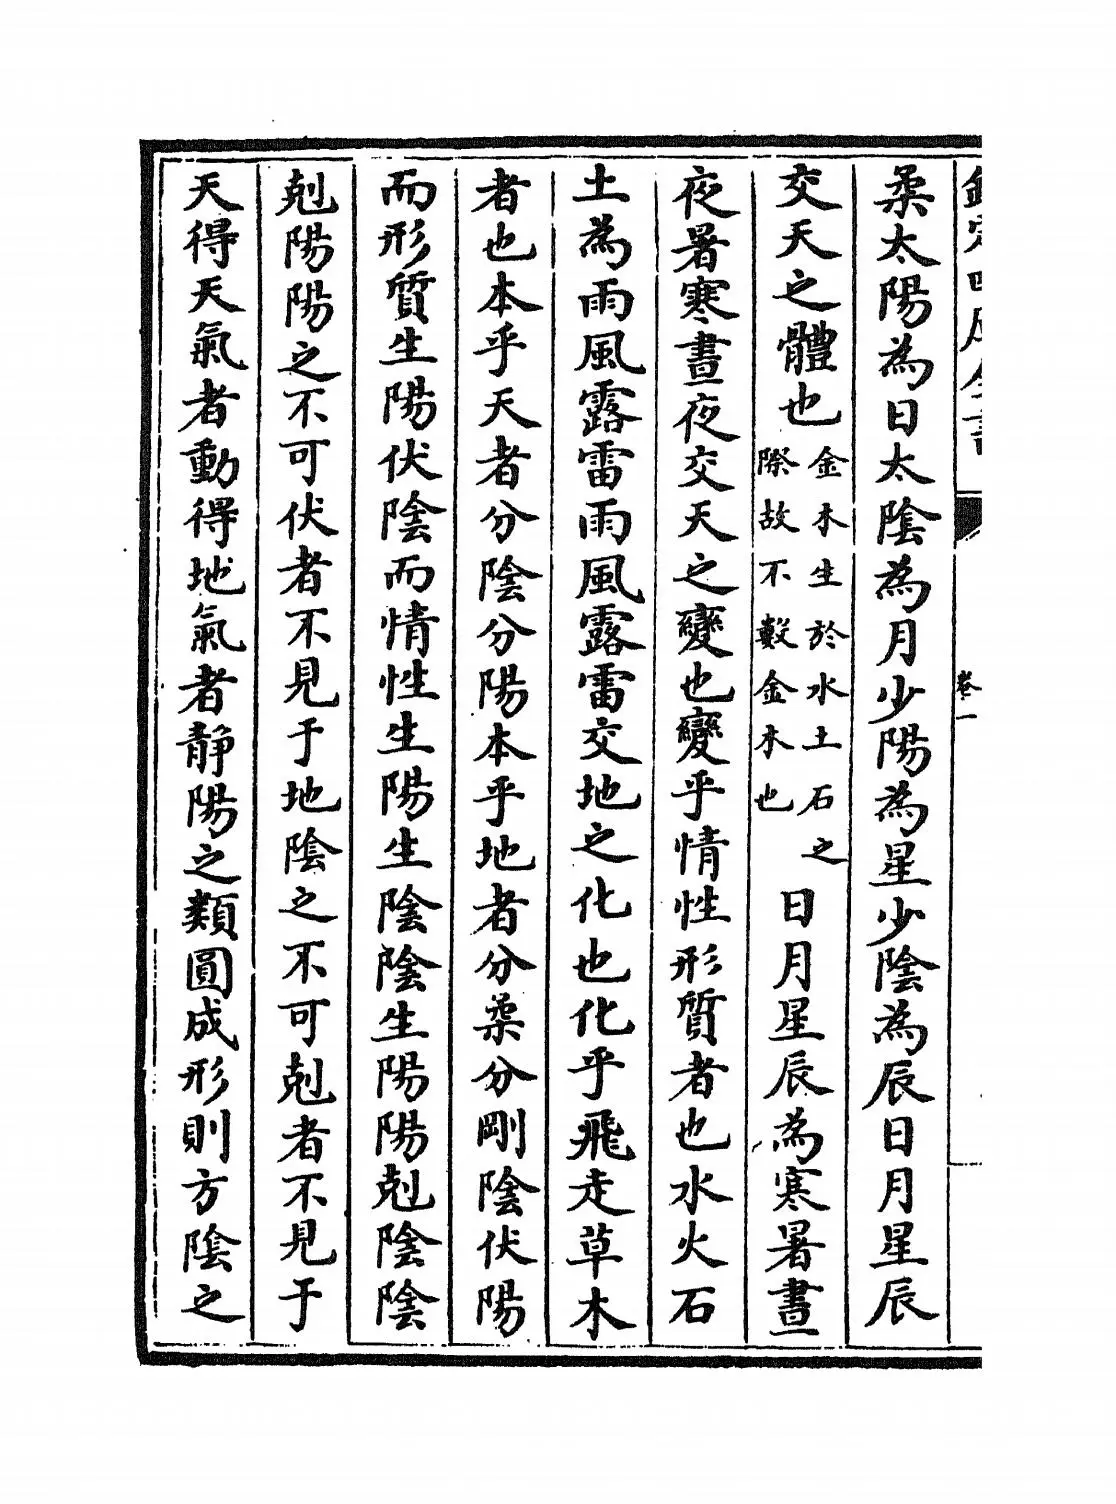 欽定四庫全書
卷一
柔太陽為日太陰為月少陽為星少陰為辰日月星辰
交天之體也金木生於水土石之際故不數金木也日月星辰為寒暑晝
夜暑寒晝夜交天之變也變乎情性形質者也水火石
土為雨風露雷雨風露雷交地之化也化乎飛走草木
者也本乎天者分陰分陽本乎地者分柔分剛陰伏陽
而形質生陽伏陰而情性生陽生陰陰生陽陽剋陰陰
剋陽陽之不可伏者不見于地陰之不可剋者不見于
天得天氣者動得地氣者靜陽之類圓成形則方陰之